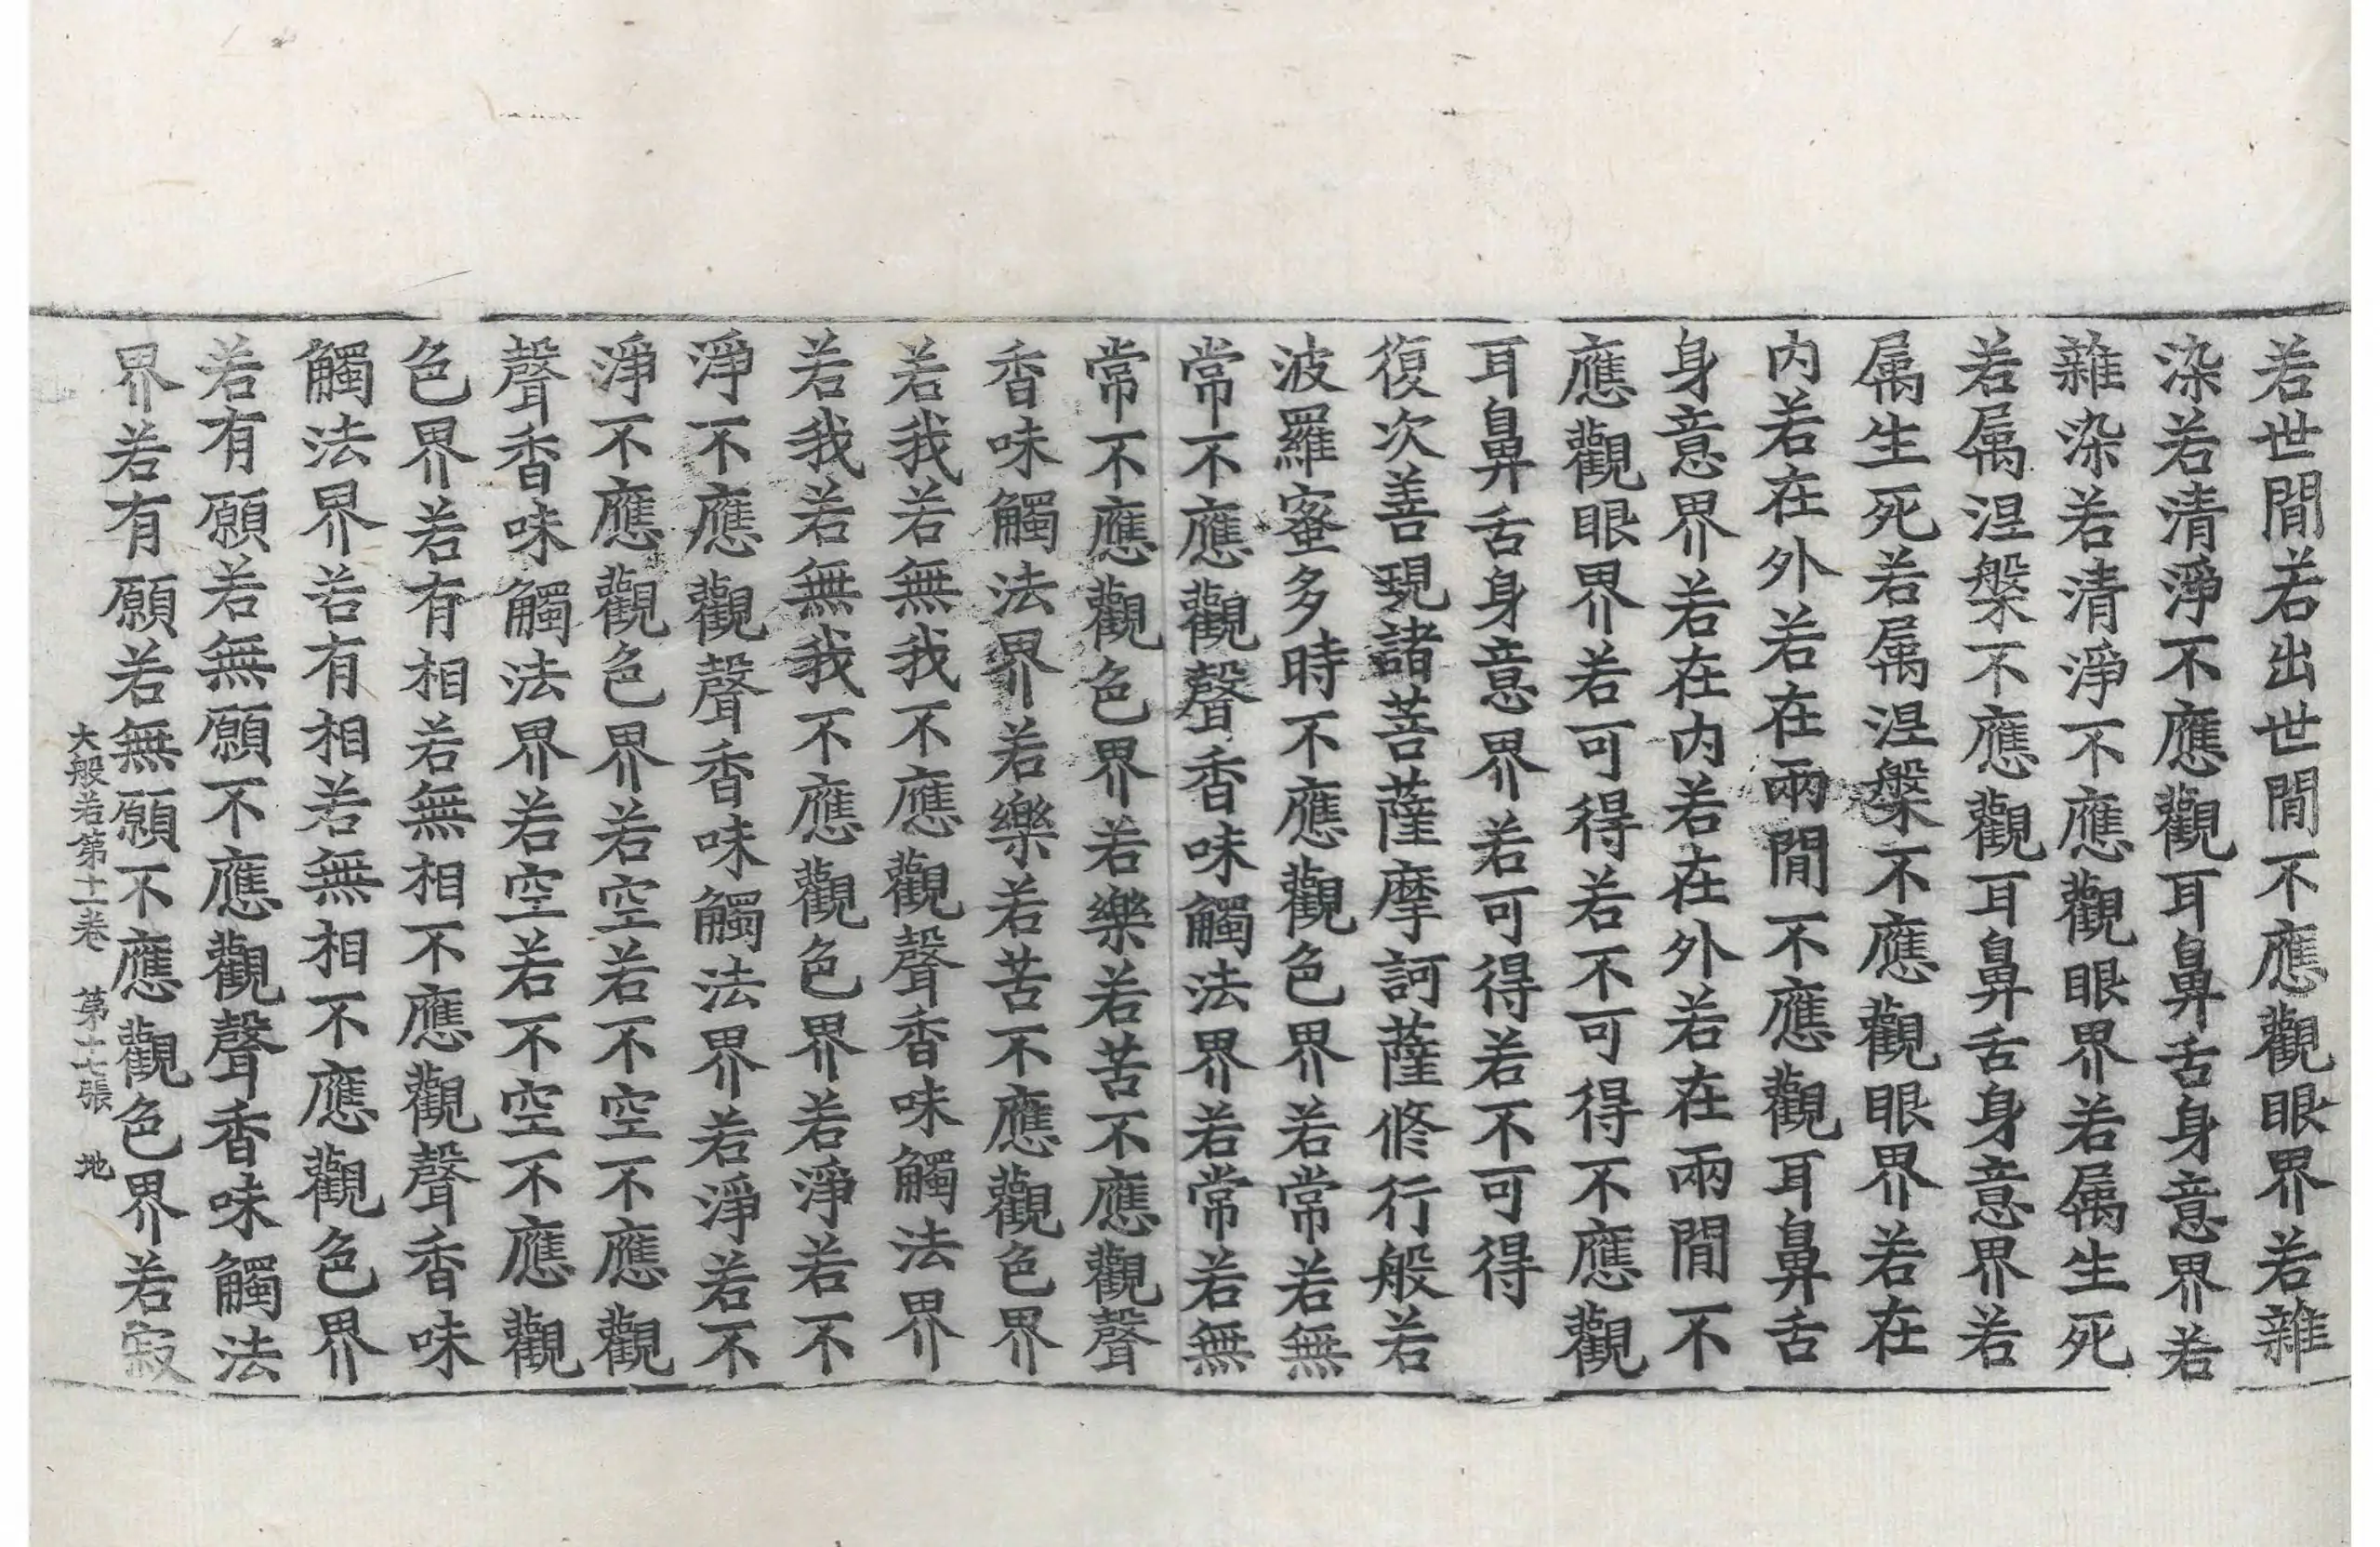 若世閒若出世閒不應觀眼界若雜
染若清淨不應觀耳鼻舌身意界若
雜染若清淨不應觀眼界若属生死
若属涅槃不應觀耳鼻舌身意界若
属生死若属涅槃不應觀眼界若在
内若在外若在兩閒不應觀耳鼻舌
身意界若在内若在外若在兩閒不
應觀眼界若可得若不可得不應觀
耳鼻舌身意界若可得若不可得
復次善現諸菩薩摩訶薩修行般若
波羅蜜多時不應觀色界若常若無
常不應觀聲香味觸法界若常若無
常不應觀色界若樂若苦不應觀聲
香味觸法界若樂若苦不應觀色界
若我若無我不應觀聲香味觸法界
若我若無我不應觀色界若淨若不
淨不應觀聲香味觸法界若淨若不
淨不應觀色界若空若不空不應觀
聲香味觸法界若空若不空不應觀
色界若有相若無相不應觀聲香味
觸法界若有相若無相不應觀色界
若有願若無願不應觀聲香味觸法
界若有願若無願不應觀色界若寂
大般若第十二卷 第十七張 地